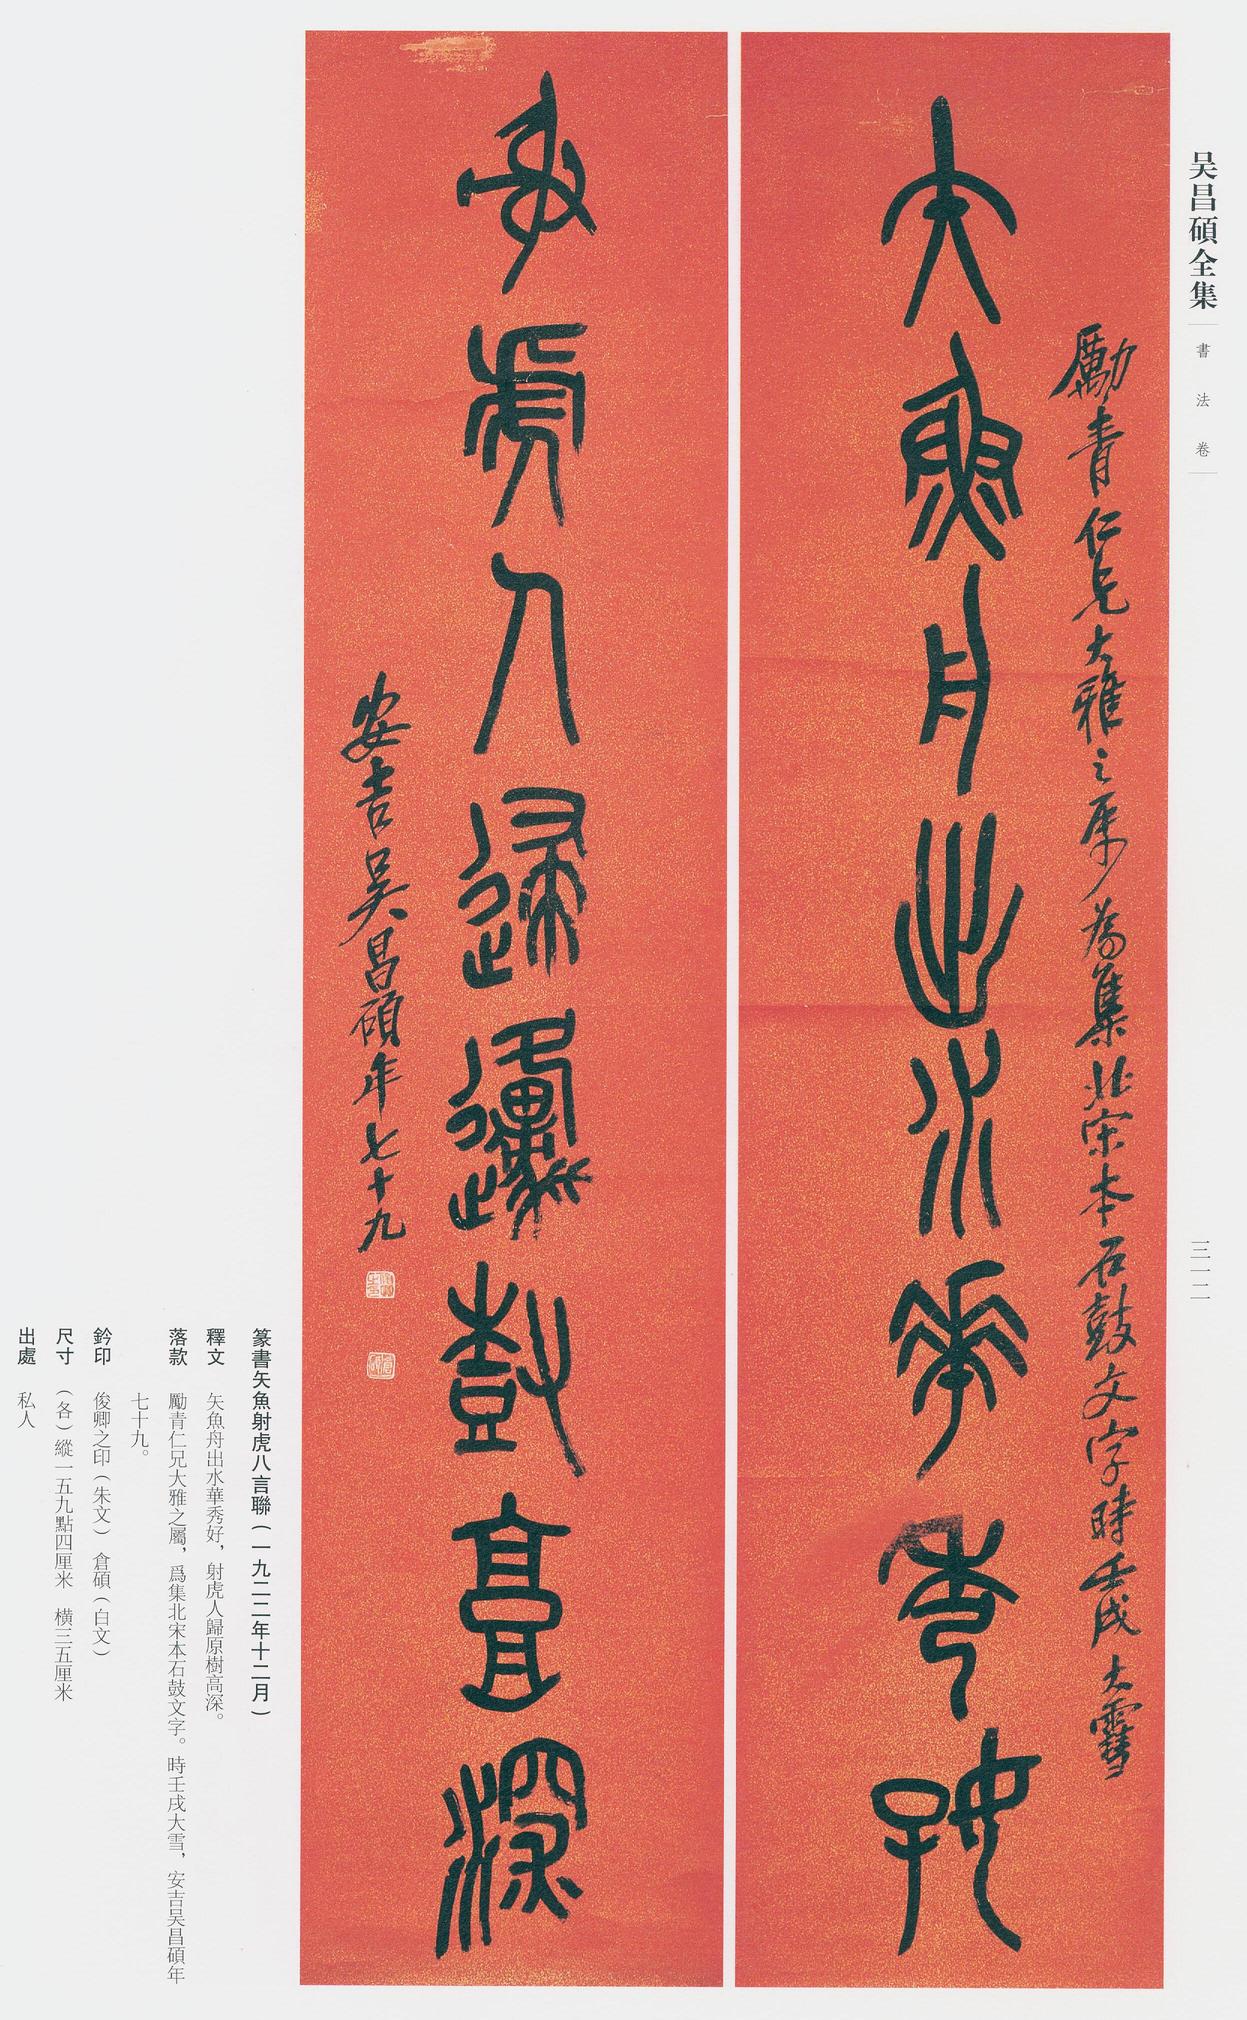 吴昌碩全集
書法卷
三一二
勵青仁兄大雅之屬為集北宋本石鼓文字時壬戌大雪
矢魚舟出水華秀好
射虎人歸邍樹高深
安吉吴昌碩年七十九
篆書矢魚射虎八言聯（一九二二年十二月）
釋文　矢魚舟出水華秀好，射虎人歸原樹高深。
落款　勵青仁兄大雅之屬，爲集北宋本石鼓文字。時壬戌大雪，安吉吴昌碩年
七十九。
鈐印　俊卿之印（朱文）　倉碩（白文）
尺寸　（各）縱一五九點四厘米　橫三五厘米
出處　私人